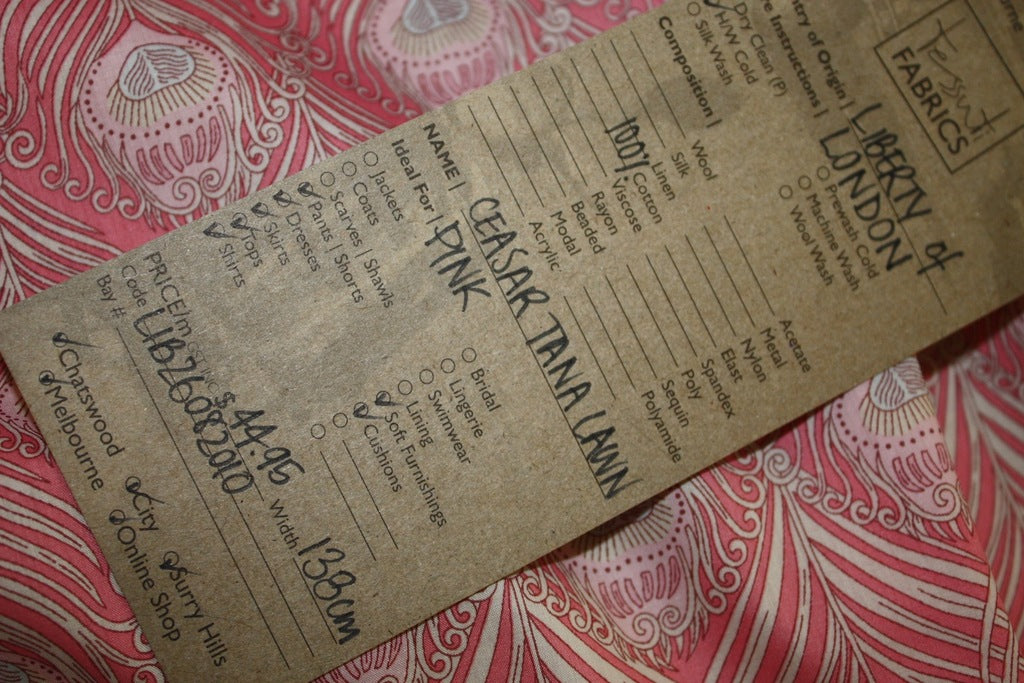 tessuti
FABRICS
LIBERTY of
LONDON
ntry of Origin |
re Instructions |
Dry Clean (P)
H/W Cold
Silk Wash
Prewash Cold
Machine Wash
Wool Wash
Composition |
Wool
Silk
Linen
100% Cotton
Viscose
Rayon
Beaded
Modal
Acrylic
Acetate
Metal
Nylon
Elast
Spandex
Poly
Sequin
Polyamide
NAME | CEASAR TANA LAWN
PINK
Ideal For |
Jackets
Coats
Scarves | Shawls
Pants | Shorts
Dresses
Skirts
Tops
Shirts
Bridal
Lingerie
Swimwear
Lining
Soft Furnishings
Cushions
PRICE/m $44.95 Width 138cm
Code LIB26082010
Bay #
Chatswood City Surry Hills
Melbourne Online Shop